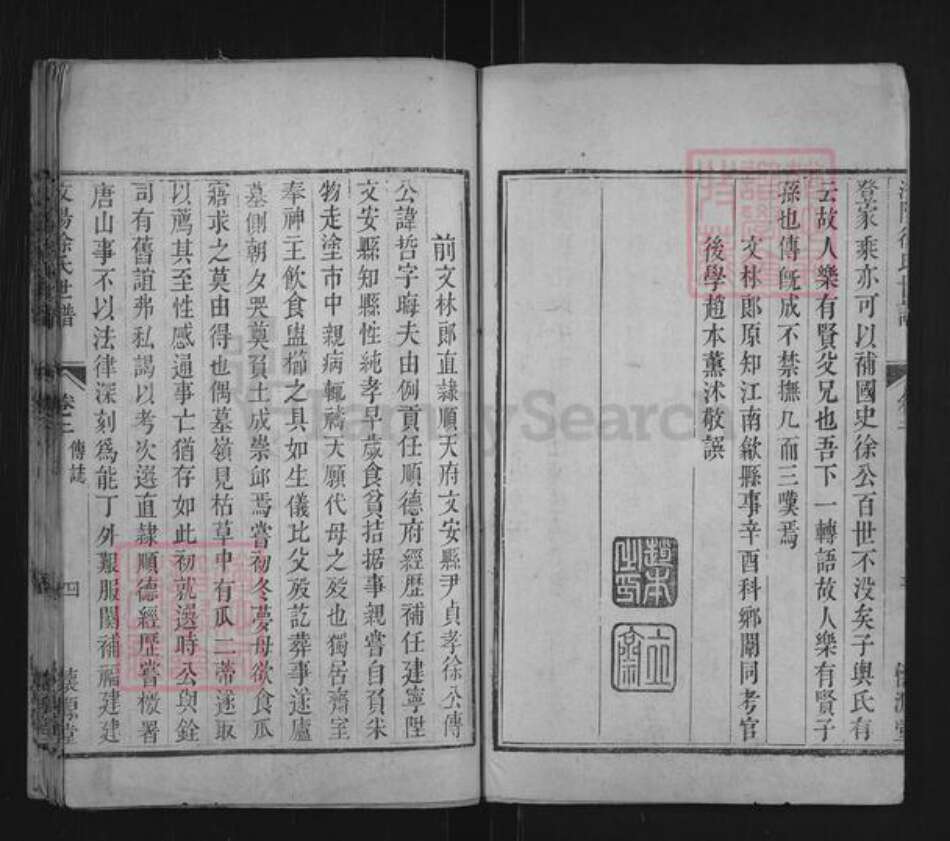 登家乘亦可以補國史徐公百世不没矣子輿氏有
云故人樂有賢父兄也吾下一轉語故人樂有賢子
孫也傳旣成不禁撫几而三嘆焉
文林郎原知江南歙縣事辛酉科鄉闈同考官
後學趙本薰沭敬譔
趙本之印
FamilySearch
前文林郎直隸順天府文安縣尹貞孝徐公傳
公諱哲字晦夫由例貢任順德府經歷補任建寧陞
文安縣知縣性純孝早歲食貧拮据事親嘗自負米
物走塗市中親病輒禱天願代母之歿也獨居齋室
奉神主飲食盥櫛之具如生儀比父歿訖葬事遂廬
墓側朝夕哭奠負土成崇邱焉嘗初冬夢母欲食瓜
寤求之莫由得也偶墓嶺見枯草中有瓜二蒂遂取
以薦其至性感通事亡猶存如此初就選時公與銓
司有舊誼弗私謁以考次選直隸順德經歷嘗檄署
唐山事不以法律深刻爲能丁外艱服闋補福建建
汶陽徐氏世譜
卷三 傳誌
四
懷源堂